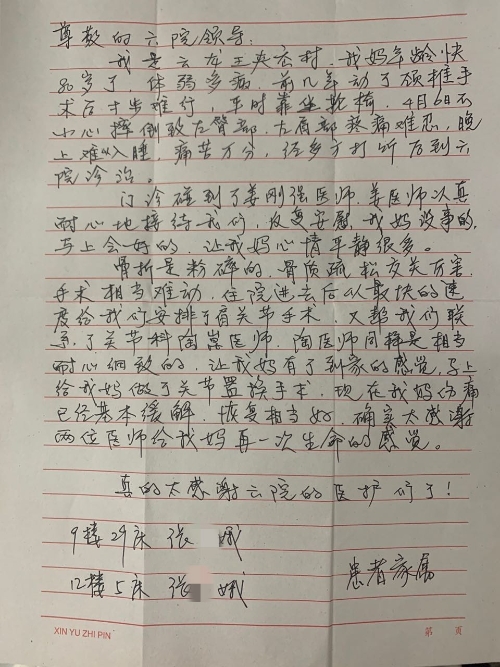 尊敬的六院领导.
我是云龙王央宏村.我妈年龄快
80岁了 体弱多病.前几年动了颈椎手
术后寸步难行，平时靠坐轮椅.4月6日不
小心摔倒致左臂部.左肩部疼痛难忍，晚
上难以入睡，痛苦万分，经多方打听后到六
院诊治。
门诊碰到了姜刚强医师.姜医师以真
耐心地接待我们，反复安慰我妈没事的，
马上会好的.让我妈心情平静很多。
骨折是粉碎的.骨质疏松交关万害.
手术相当难动.住院进去后以最快的速
度给我们安排了肩关节手术.又帮我们联
系了关节科陶崇医师.陶医师同样是相当
耐心细致的.让我妈有了到家的感觉.马上
给我妈做了关节置换手术.现在我妈伤痛
已经基本缓解.恢复相当好.确实太感谢
两位医师给我妈再一次生命的感觉。
真的太感谢六院的医护们了！
9楼29床 张 娥
12楼5床 张 娥 患者家属
XIN YU ZHI PIN 第 页